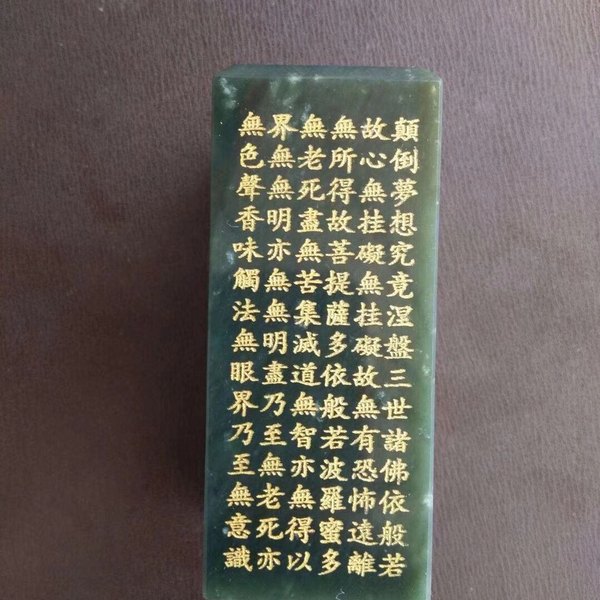 無色聲香味觸法無眼界乃至無意識
界無無明亦無無明盡乃至無老死亦
無老死盡無苦集滅道無智亦無得以
無所得故菩提薩多依般若波羅蜜多
故心無挂礙無挂礙故無有恐怖遠離
顛倒夢想究竟涅盤三世諸佛依般若